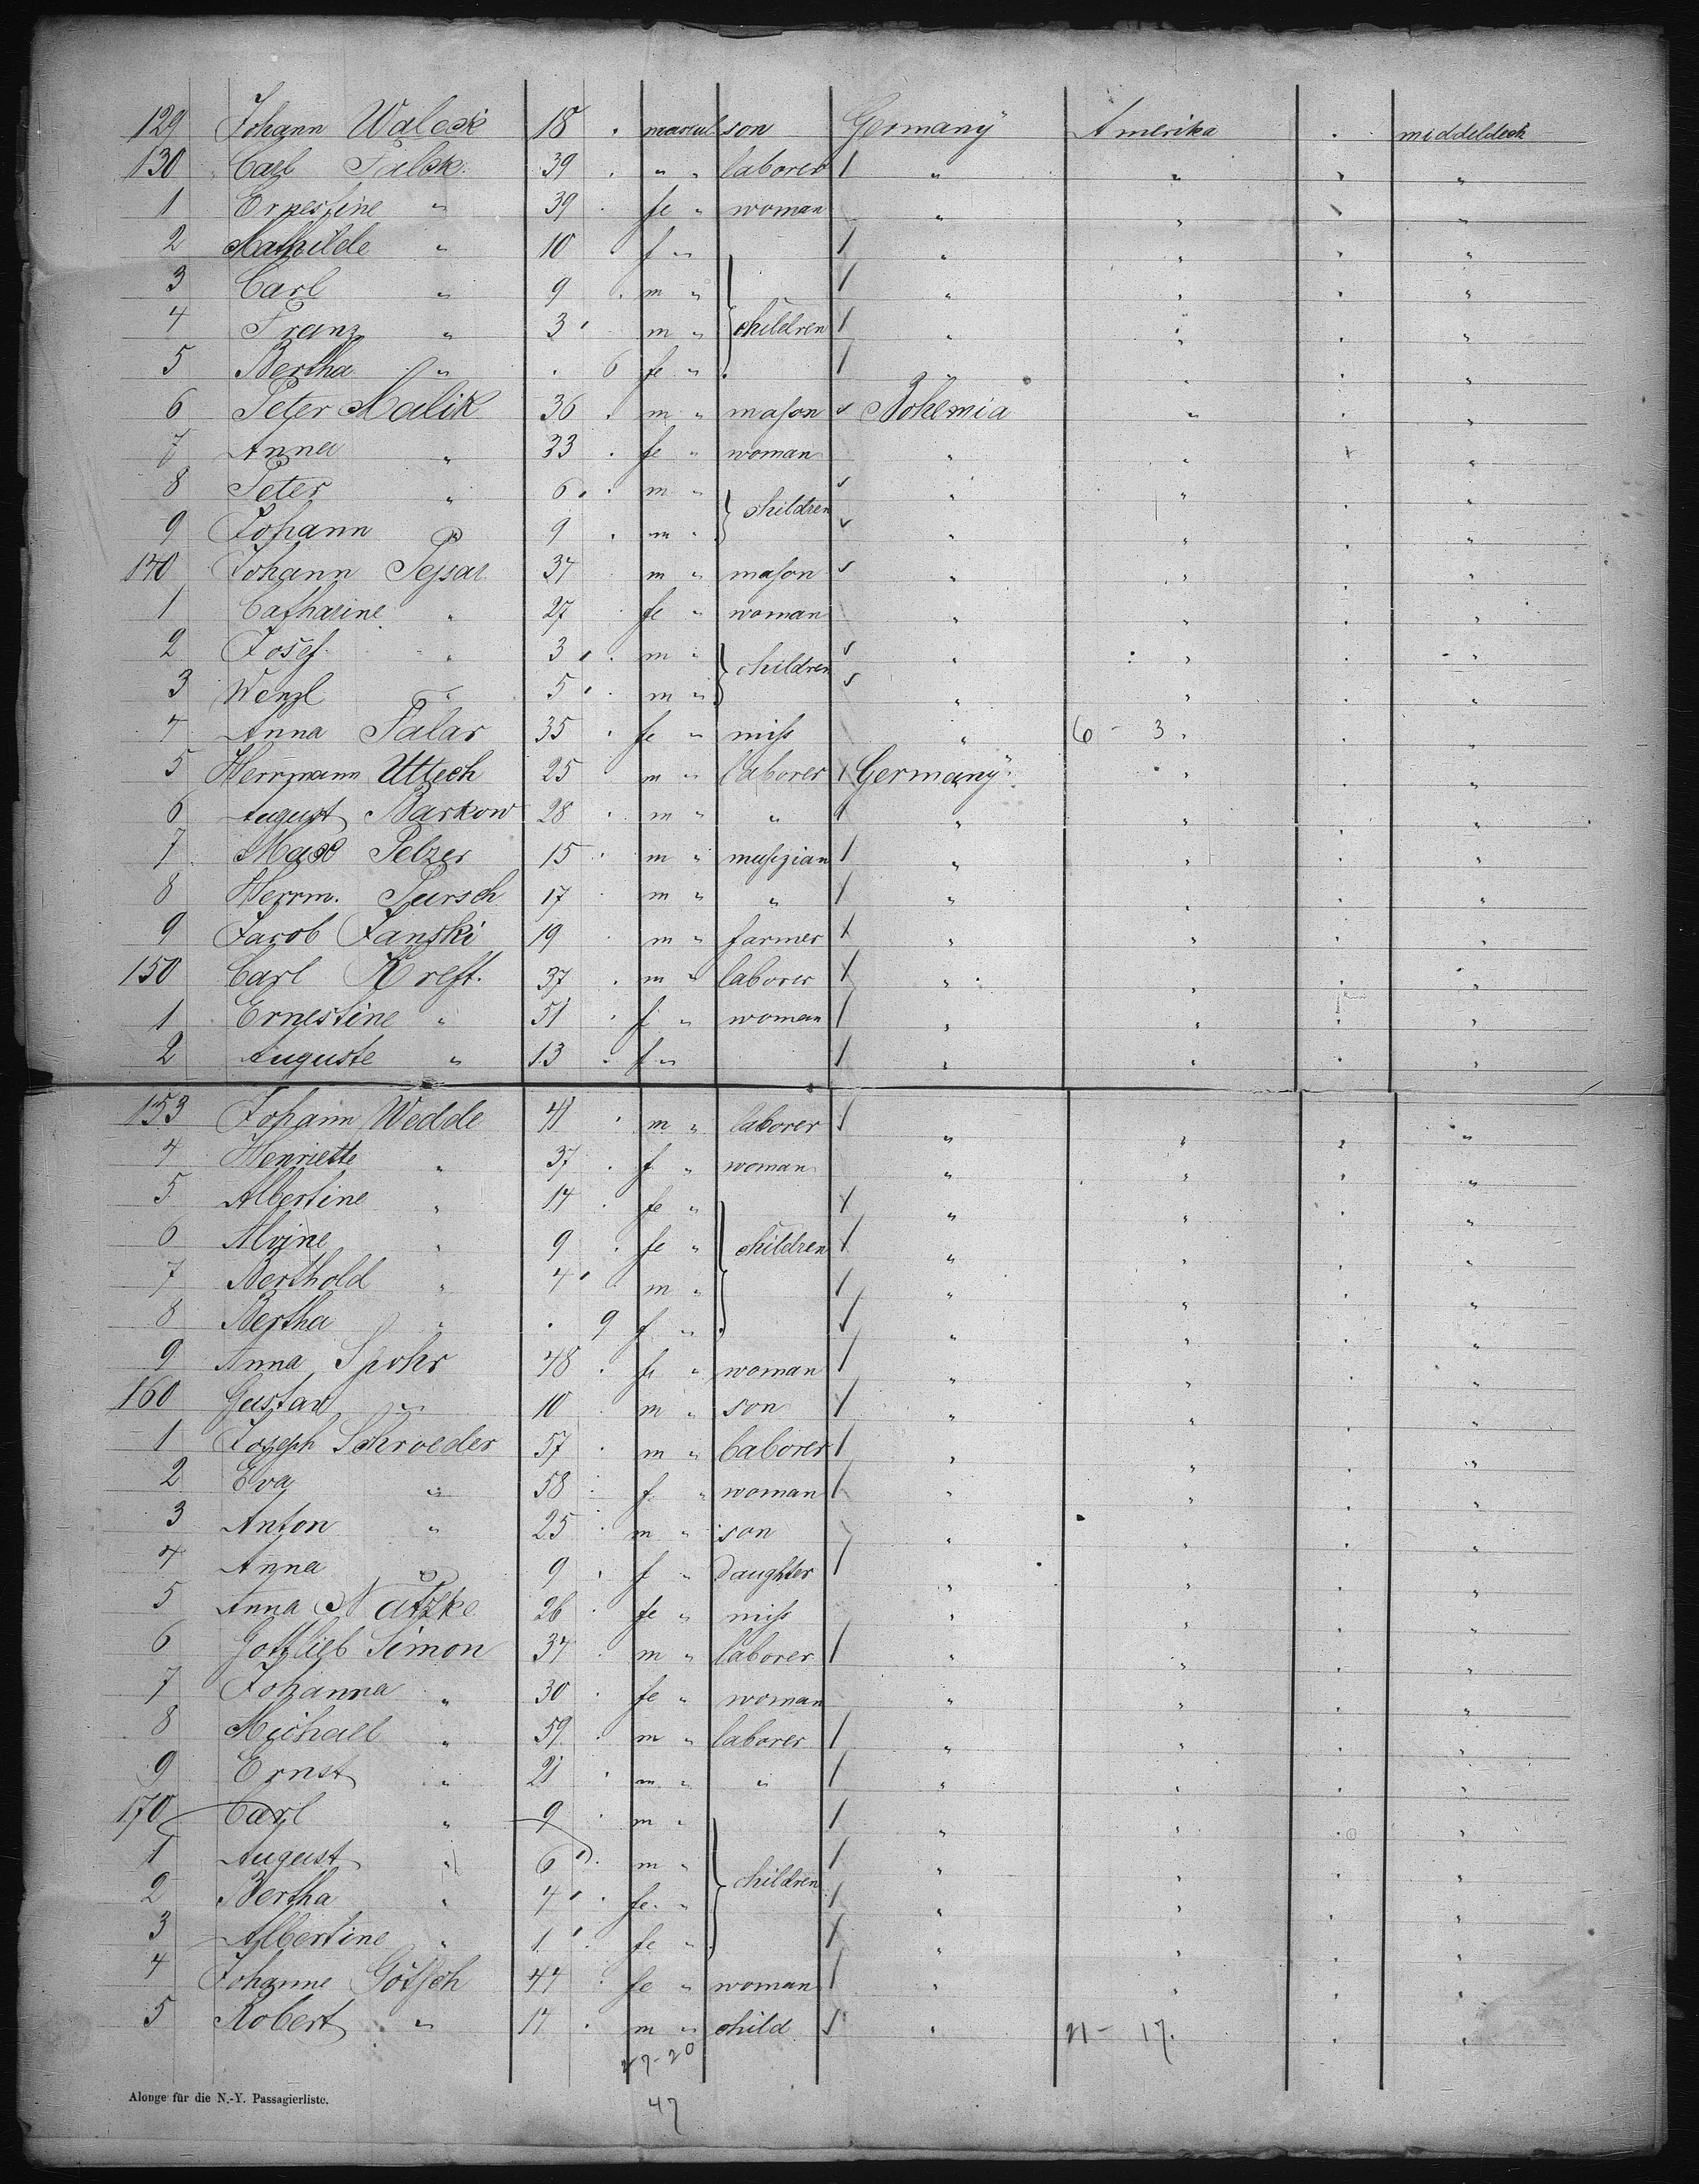 129 Johann Waleck 18 . mascul son Germany Amerika . middeldeck
130 Carl Falck 39 . " " laborer / " " " "
1 Ernestine " 39 . fe " woman " " " "
2 Mathilde " 10 f " / " " " "
3 Carl " 9 . m " / " " " "
4 Franz " 3 ' m " children / " " " "
5 Bertha " . 6 fe " / " " " "
6 Peter Malik 36 . m " mason Bohemia " " "
7 Anna " 33 . fe " woman " " " "
8 Peter " 6 . m " " " " "
9 Johann " 9 . m " children " " " "
140 Johann Pejsar 34 m " mason " " " "
1 Catharine " 27 . fe " woman " " " "
2 Josef " 3 ' . m " " " " "
3 Wenzl " 5 ' . m " children " " " "
4 Anna Palar 35 . fe " miss " 6 - 3 . "
5 Herrmann Uttech 25 m " laborer / Germany " " "
6 August Barkow 28 . m " " / " " " "
7 Max Pelzer 15 . m " musizian / " " " "
8 Herrm. Pursch 17 . m " " / " " " "
9 Jacob Janski 19 . m " farmer / " " " "
150 Carl Kreft. 37 . m " laborer / " " " "
1 Ernestine " 51 . f " woman / " " " "
2 Auguste " 13 . f " / " " " "
153 Johann Wedde 41 . m " laborer / " " " "
4 Henriette " 37 . f " woman " " " "
5 Albertine " 14 . fe " / " " " "
6 Alvine " 9 . fe " children / " " " "
7 Berthold " 4 ' m " / " " " "
8 Bertha " . 9 f " / " " " "
9 Anna Spohr 48 . fe " woman / " " " "
160 Gustav " 10 m " son / " " " "
1 Joseph Schroeder 57 . m " laborer / " " " "
2 Eva " 58 . f " woman / " " " "
3 Anton " 25 . m " son / " " " "
4 Anna " 9 . f " daughter / " " " "
5 Anna Natzke 26 . fe " miss " " " "
6 Gottlieb Simon 34 . m " laborer / " " " "
7 Johanna " 30 . fe " woman " " " "
8 Michael " 59 . m " laborer / " " " "
9 Ernst " 21 . m " " / " " " "
170 Carl " 9 . m " / " " " "
1 August " 6 ' . m " / " " " "
2 Bertha " 4 ' . fe " children / " " " "
3 Albertine " 1 ' . fe " / " " " "
4 Johanne Götsch 44 . fe " woman / " " " "
5 Robert " 17 . m " child / " 21 - 17. . "
27-20
47
Alonge für die N.-Y. Passagierliste.